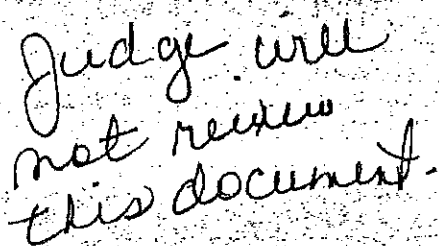 Judge will
not review
this document.